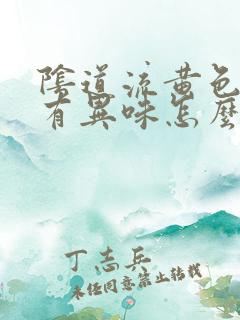 陰道流黄色
有異味怎麽
丁志兵
未经同意禁止转载